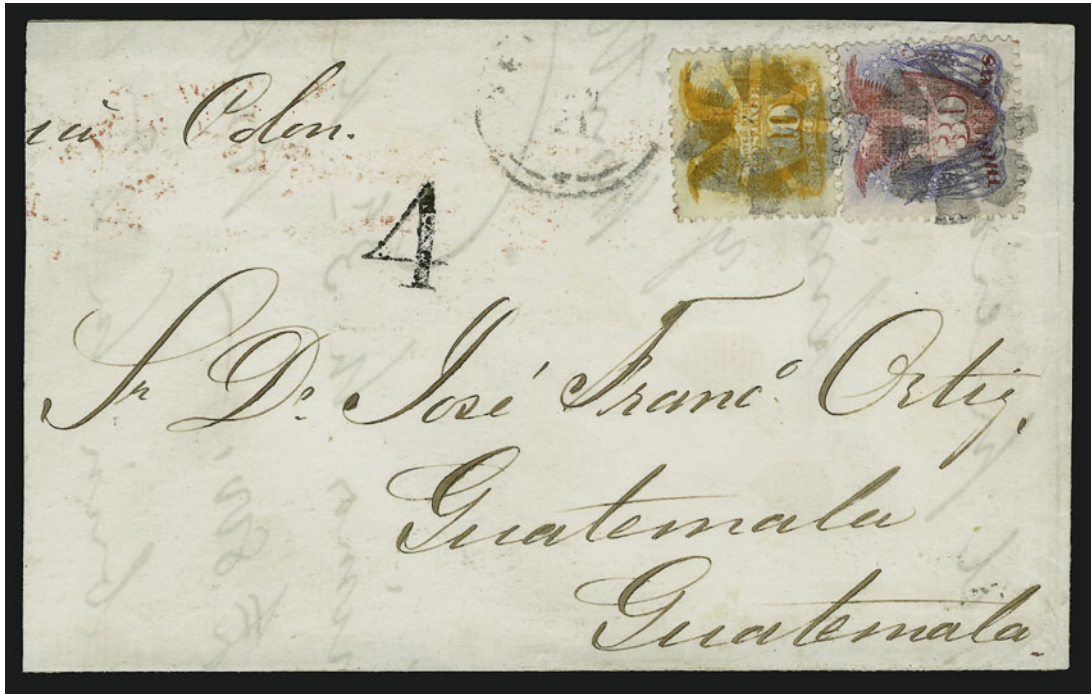 iá Colon.
4
10
30
Sr. Dn. José Franco. Ortiz,
Guatemala
Guatemala.